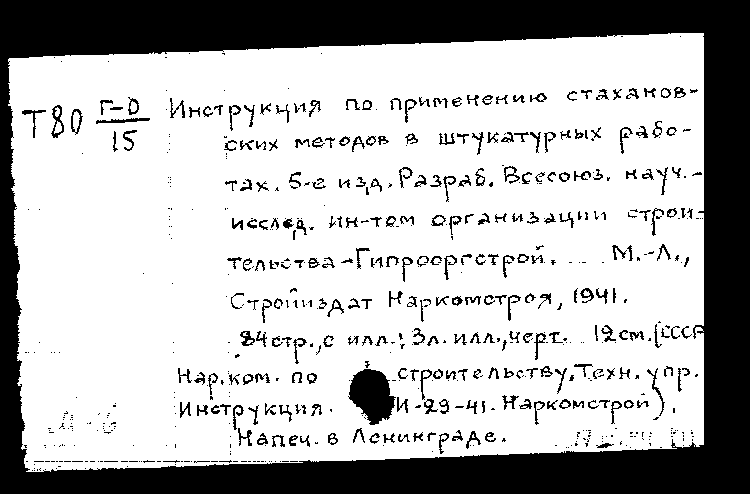 Т80 Г-0/15 Инструкция по применению стаханов-
ских методов в штукатурных рабо-
тах. 5-е изд. Разраб. Всесоюз. науч.-
исслед. ин-том организации строи-
тельства-Гипрооргстрой. М.-Л.,
Стройиздат Наркомстроя, 1941.
84 стр., с илл.; 3 л. илл., черт. 12 см. (СССР
Нар. ком. по строительству. Техн. упр.
Инструкция. И-29-41. Наркомстрой).
М-6
Напеч. в Ленинграде.